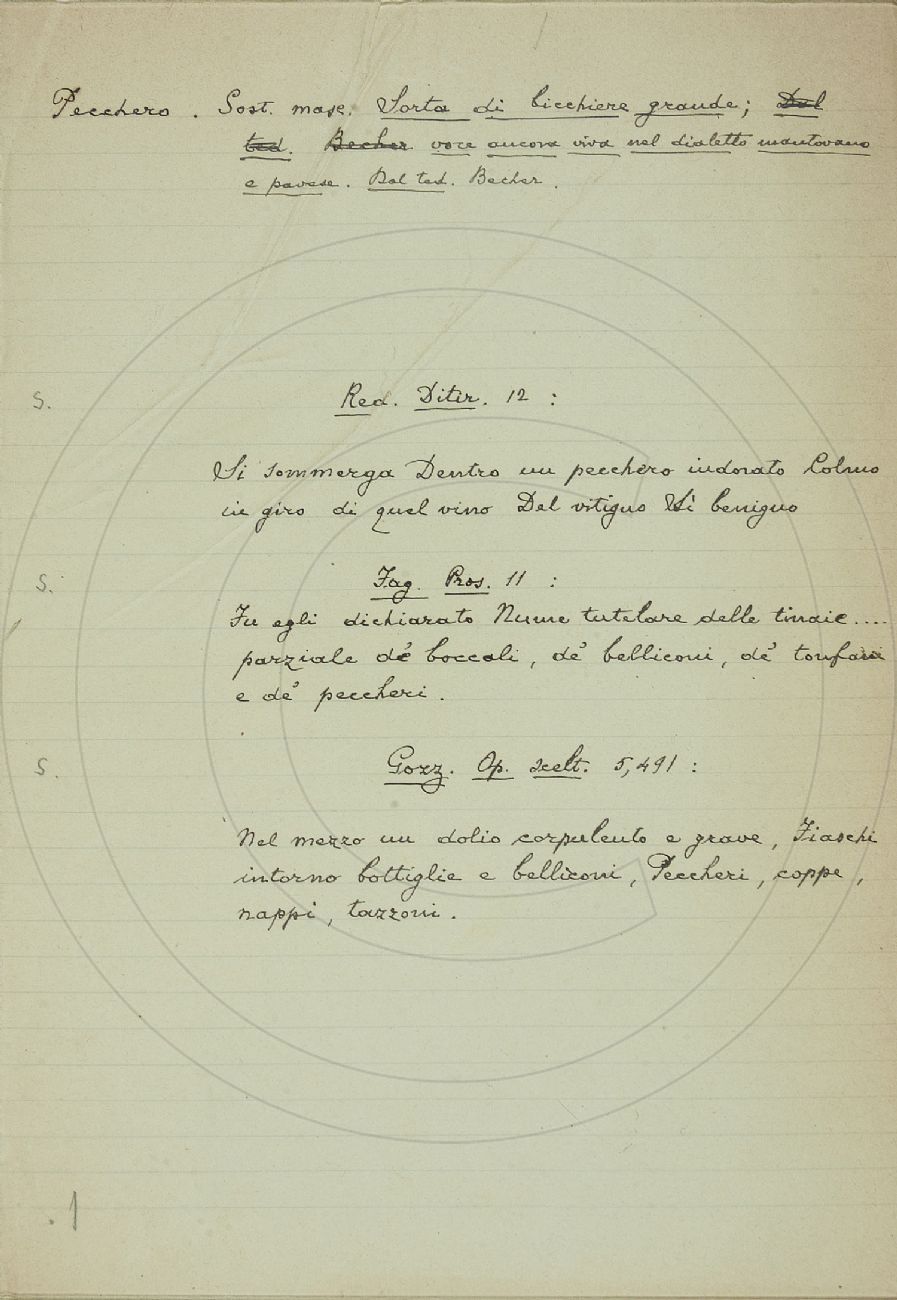 Pecchero. Sost. masc. Sorta di bicchiere grande; Dal
ted. Becher voce ancora viva nel dialetto mantovano
e pavese. Dal ted. Becher.
S. Red. Ditir. 12 :
Si sommerga Dentro un pecchero indorato Colmo
in giro di quel vino Del vitigno Sì benigno
S. Fag. Pros. 11 :
Fu egli dichiarato Nume tutelare delle tinaie....
parziale de' boccali, de' belliconi, de' tonfani
e de' peccheri.
S. Gozz. Op. scelt. 5,491 :
Nel mezzo un dolio corpulento e grave, Fiaschi
intorno bottiglie e belliconi, Peccheri, coppe,
nappi, tazzoni.
1